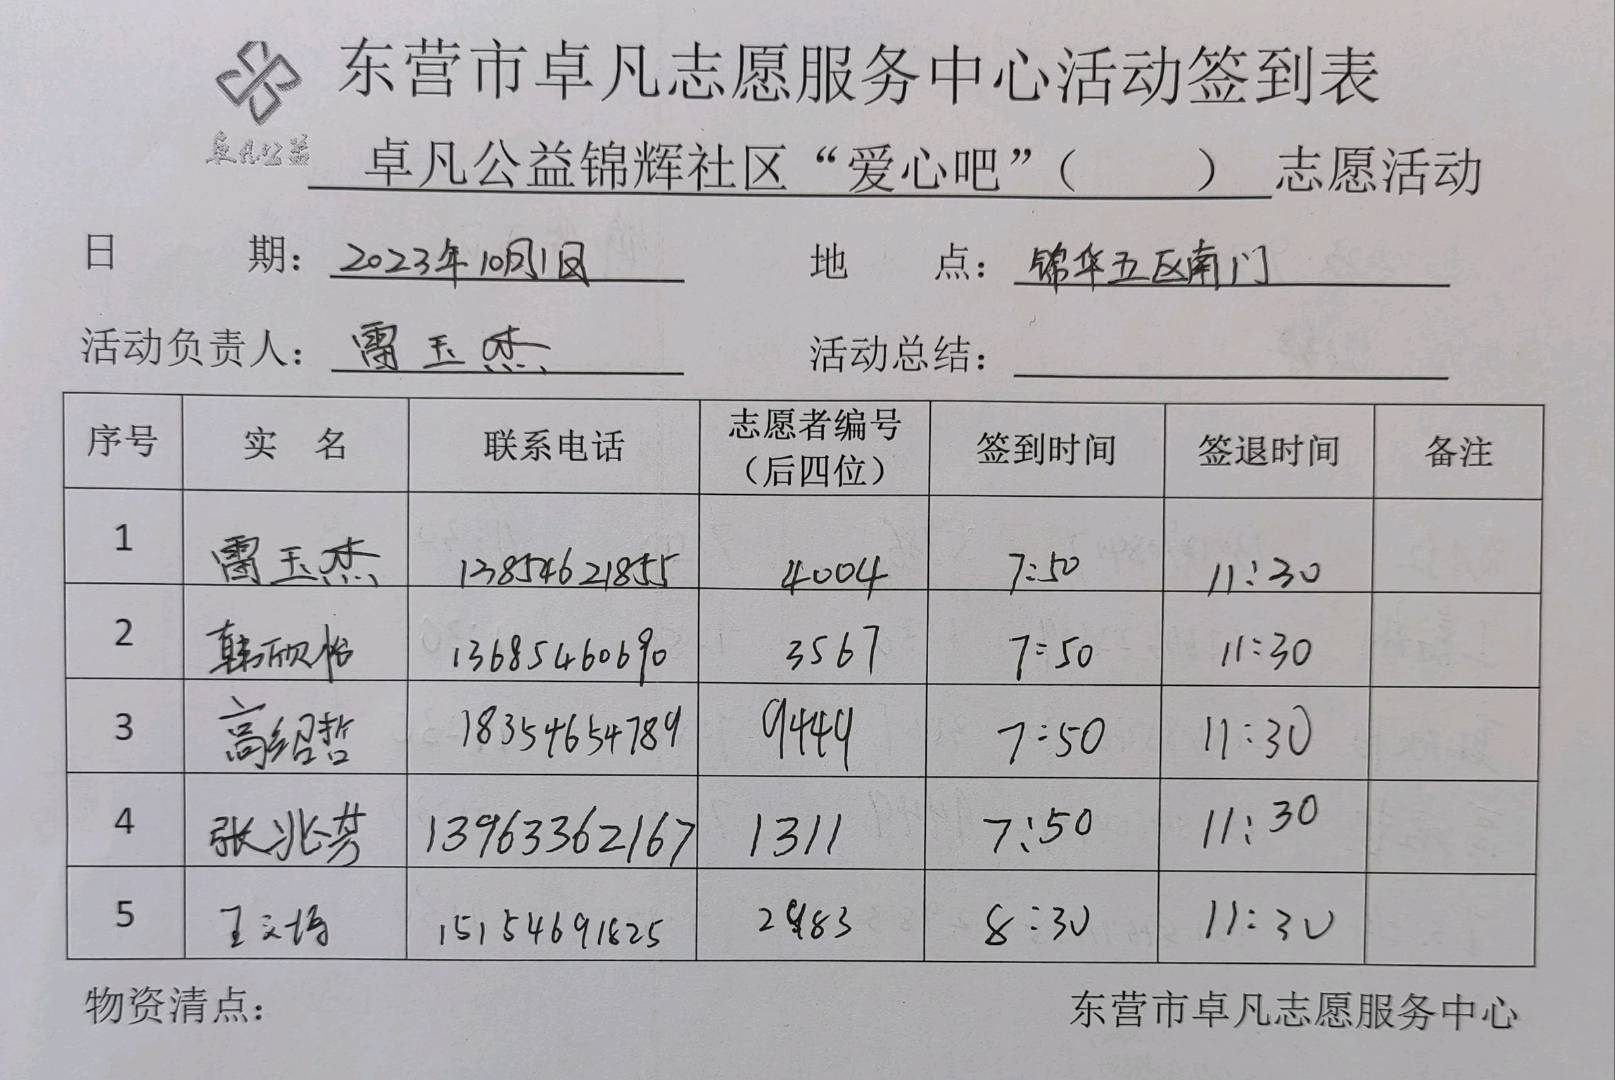 东营市卓凡志愿服务中心活动签到表
卓凡公益
卓凡公益锦辉社区“爱心吧”（ ）志愿活动
日 期： 2023年10月1日 地 点： 锦华五区南门
活动负责人： 雷玉杰 活动总结：
序号 实 名 联系电话 志愿者编号（后四位） 签到时间 签退时间 备注
1 雷玉杰 13854621855 4004 7:50 11:30
2 韩欣怡 13685460690 3567 7:50 11:30
3 高绍哲 18354654789 9449 7:50 11:30
4 张兆芳 13963362167 1311 7:50 11:30
5 王文 15154691825 2983 8:30 11:30
物资清点： 东营市卓凡志愿服务中心